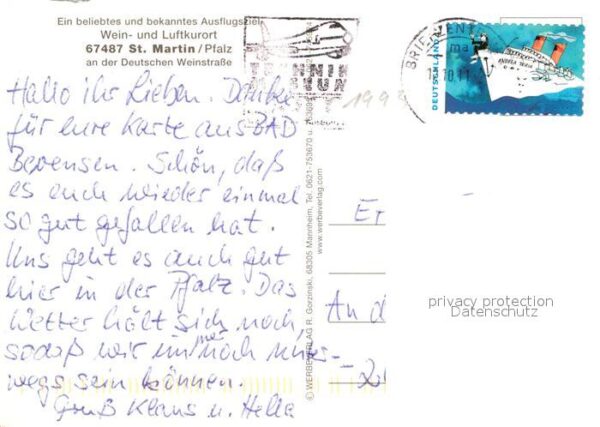 Ein beliebtes und bekanntes Ausflugsziel
Wein- und Luftkurort
67487 St. Martin/Pfalz
an der Deutschen Weinstraße
Hallo ihr Lieben. Danke
für eure Karte aus BAD
Bevensen. Schön, daß
es euch wieder einmal
so gut gefallen hat.
Uns geht es auch gut
hier in der Pfalz. Das
Wetter hält sich noch
sodaß wir immer noch unter-
wegs sein können.
Gruß Klaus u. Hella
© WERBEVERLAG R. Gorzinski, 68305 Mannheim, Tel. 0621-753670 u.
www.werbeverlag.com
BRIEFZENT
DEUTSCHLAND
1998
An d
privacy protection
Datenschutz